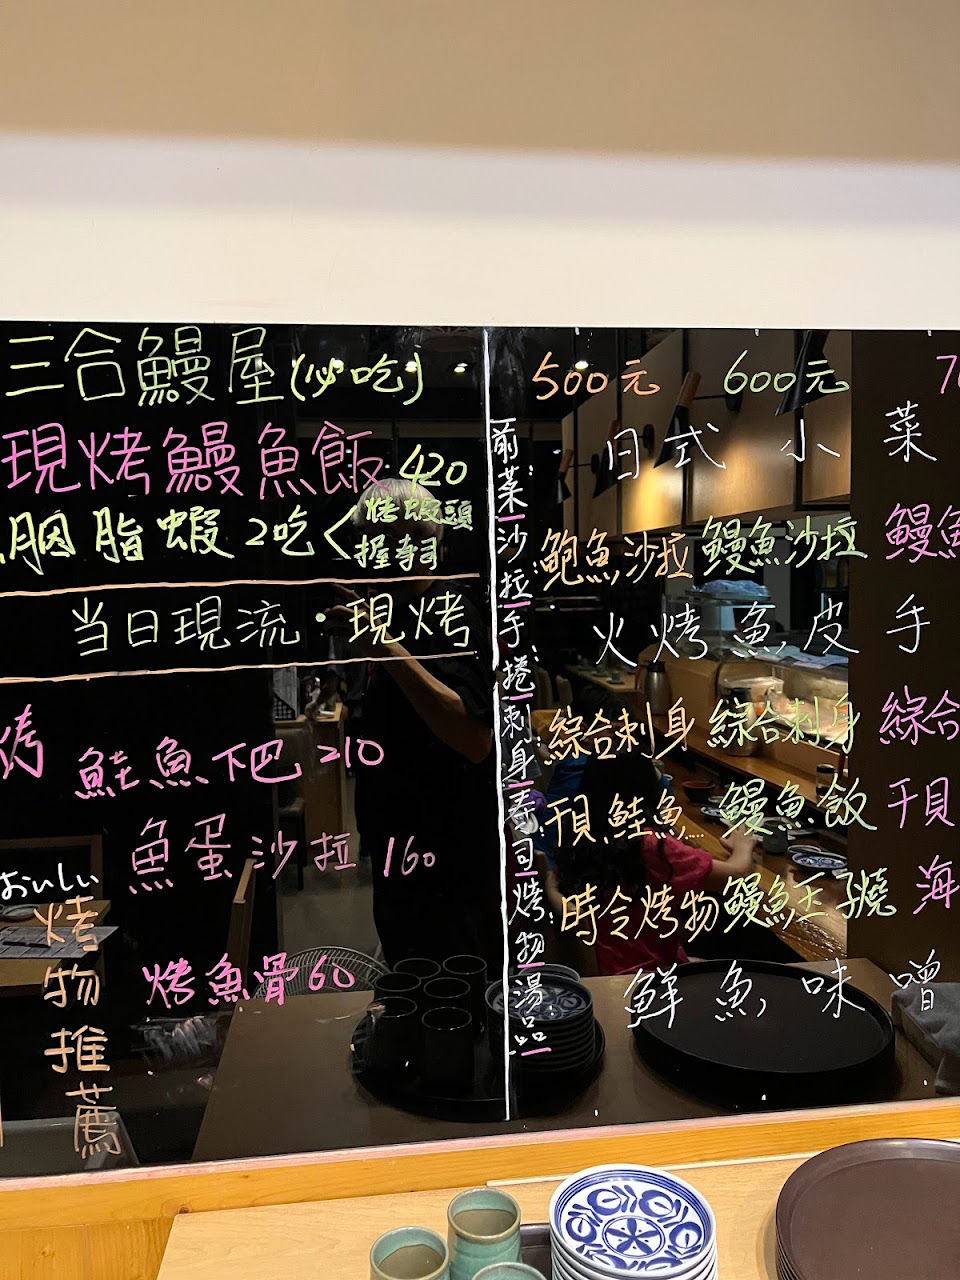 三合鰻屋(必吃)
現烤鰻魚飯 420
胭脂蝦 2吃 烤蝦頭
握寿司
当日現流・現烤
烤
鮭魚下巴 210
魚蛋沙拉 160
おいしい
烤物推薦
烤魚骨60
500元 600元
前菜: 日式小菜
沙拉: 鮑魚沙拉 鰻魚沙拉 鰻魚
手捲: 火烤魚皮手
刺身: 綜合刺身 綜合刺身 綜合
寿司: 干貝鮭魚.... 鰻魚飯 干貝
烤物: 時令烤物 鰻魚玉子燒 海
湯品 鮮魚味噌